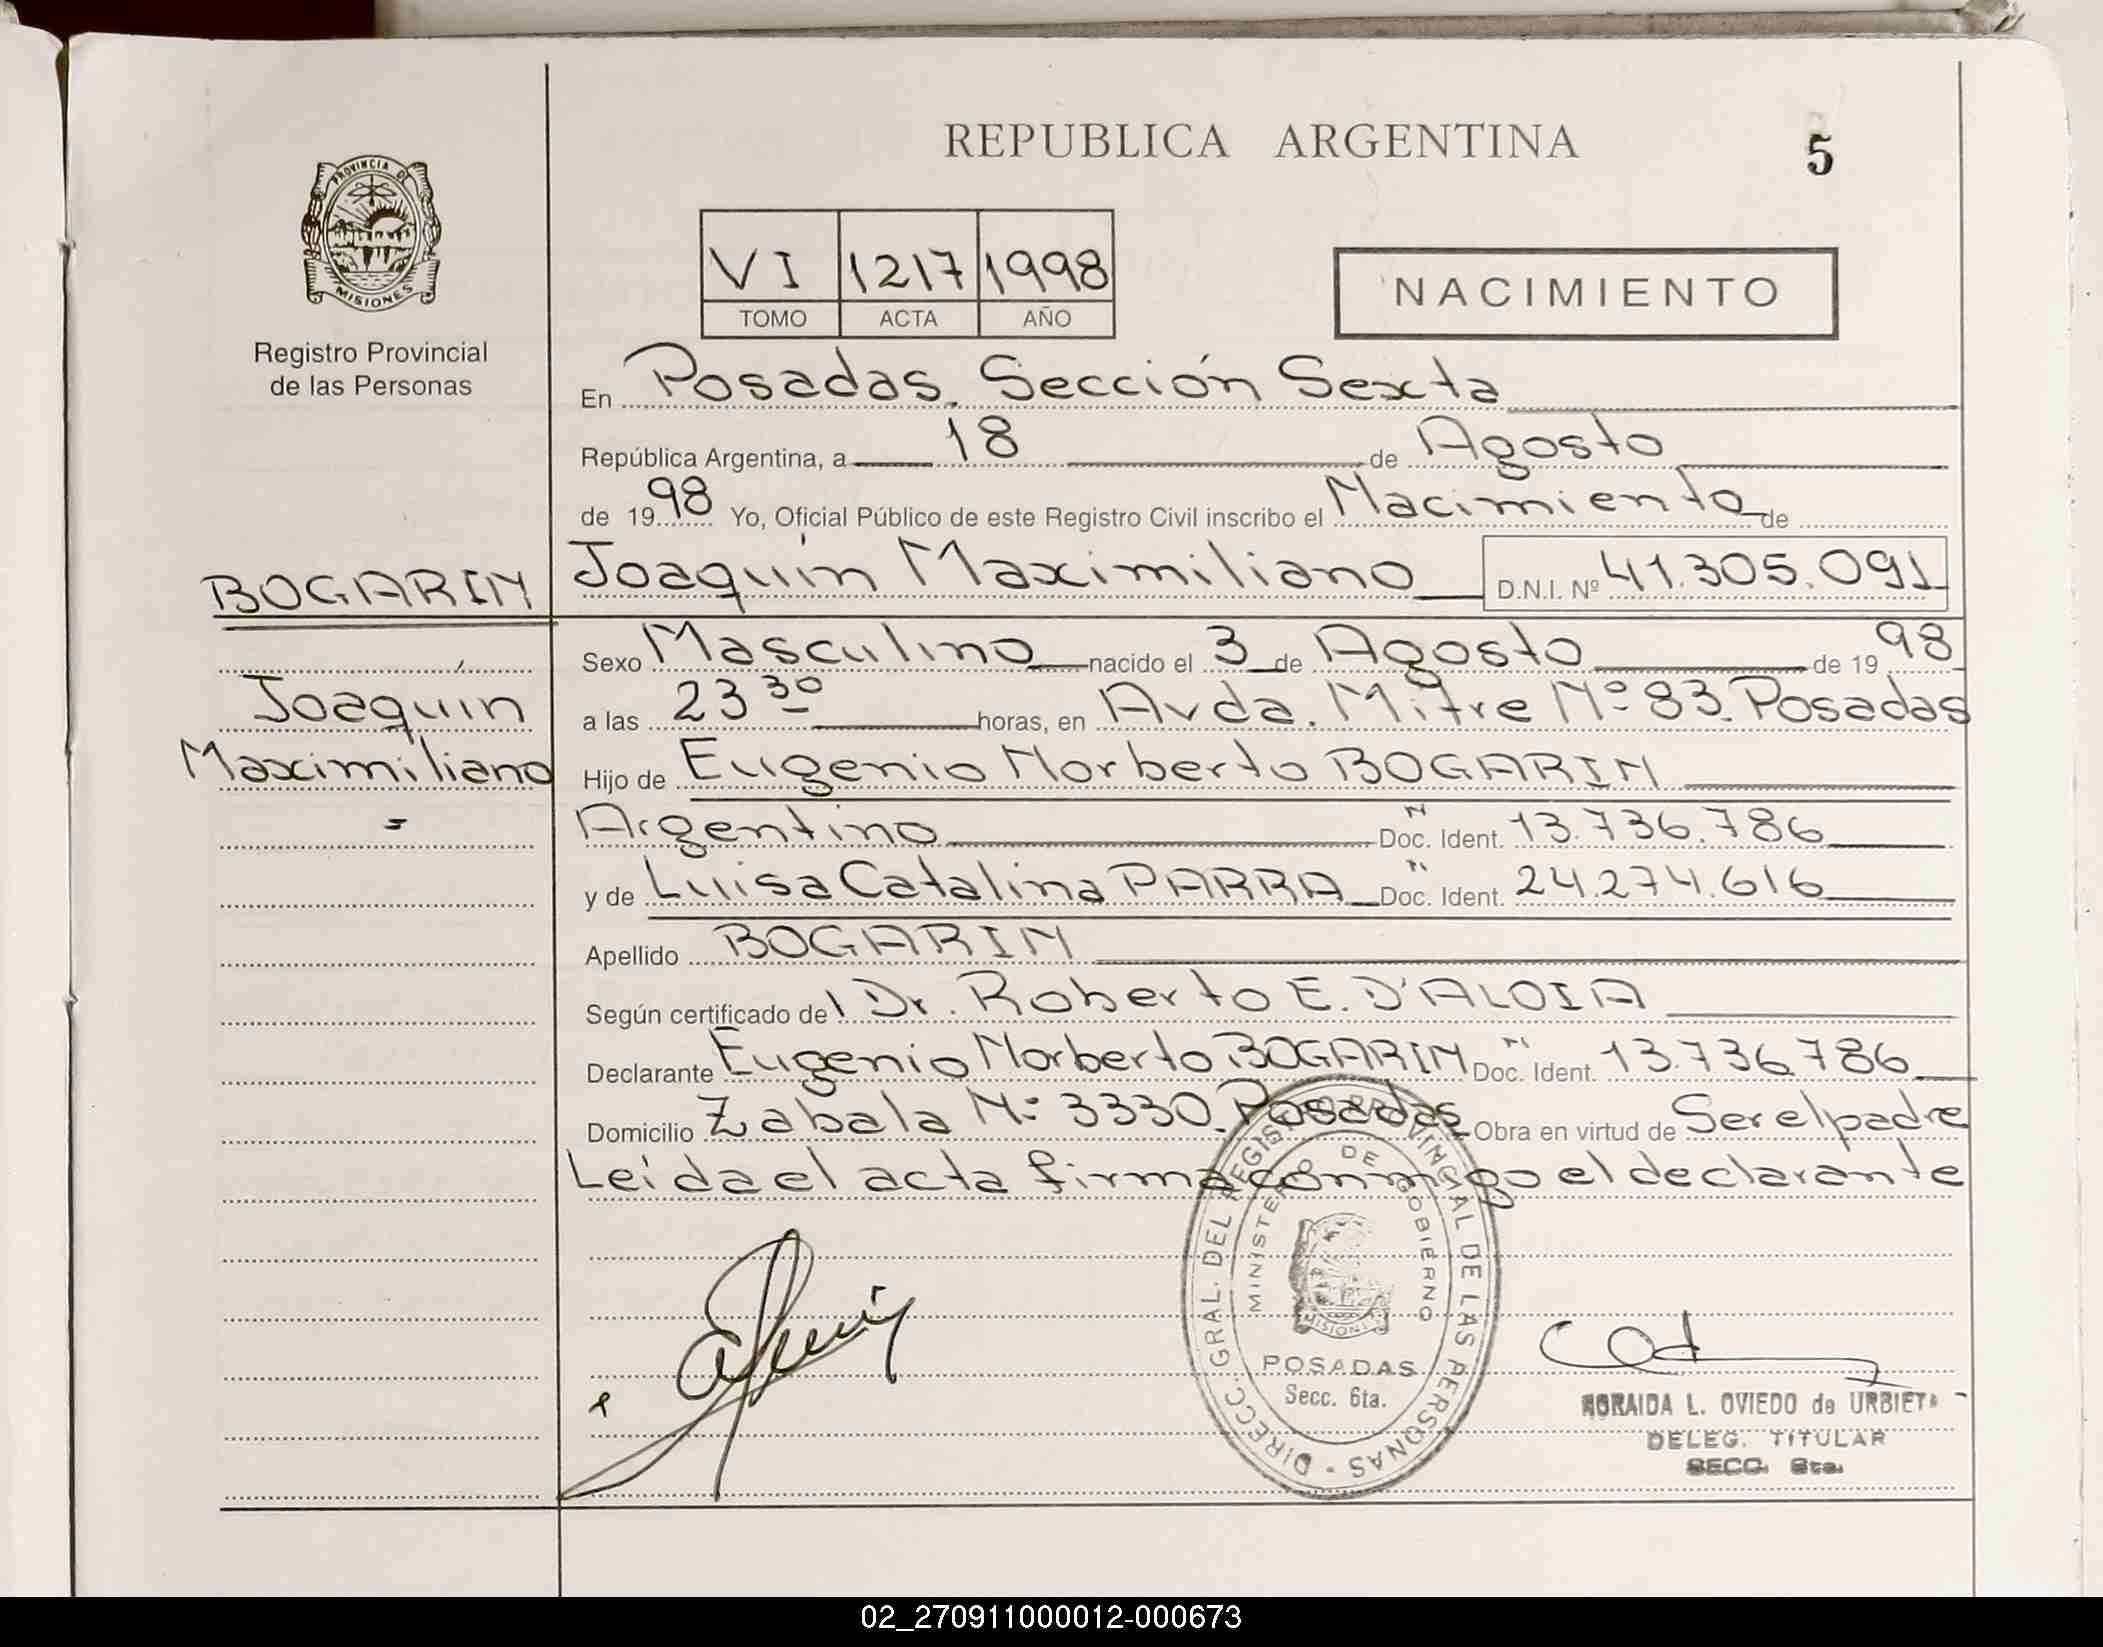 REPUBLICA ARGENTINA
5
PROVINCIA DE
MISIONES
Registro Provincial
de las Personas
VI 1217 1998
TOMO ACTA AÑO
NACIMIENTO
En Posadas. Sección Sexta
República Argentina, a 18 de Agosto
de 1998 Yo, Oficial Público de este Registro Civil inscribo el Nacimiento de
BOGARIN
Joaquín Maximiliano D.N.I. Nº 41.305.091
Sexo Masculino nacido el 3 de Agosto de 1998
Joaquín
Maximiliano
=
a las 23 30 horas, en Avda. Mitre Nº 83. Posadas
Hijo de Eugenio Norberto BOGARIN
Argentino Doc. Ident. N 13.736.786
y de Luisa Catalina PARRA Doc. Ident. N 24.274.616
Apellido BOGARIN
Según certificado del Dr. Roberto E. D'ALOIA
Declarante Eugenio Norberto BOGARIN Doc. Ident. N 13.736.786
Domicilio Zabala Nº 3330. Posadas Obra en virtud de Ser el padre
Leída el acta firma conmigo el declarante
DIRECC. GRAL. DEL REGISTRO PROVINCIAL DE LAS PERSONAS
MINISTERIO DE GOBIERNO
MISIONES
POSADAS
Secc. 6ta.
L. OVIEDO de URBIETA
DELEG. TITULAR
SECC. 6ta.
02_270911000012-000673